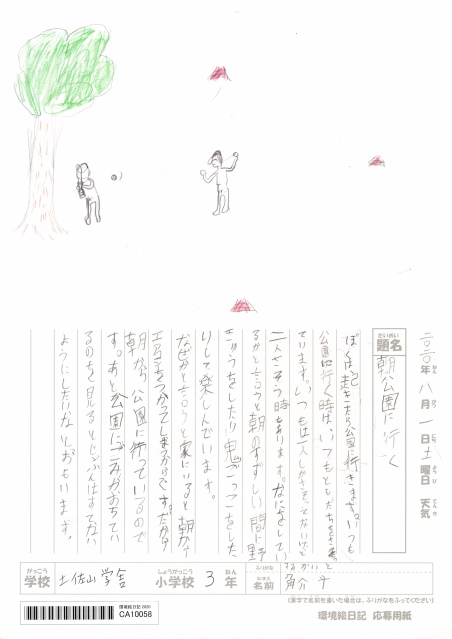 二〇二〇年 八月 一日 土曜日 天気
題名 朝公園に行く
ぼくは朝起きたら公園に行きます。いつも
公園に行く時は、いつもともだちをさそっ
ています。いつもは一人しかさそってないけど
二人さそう時もあります。なにをしてい
るかと言うと朝のすずしい間に野
きゅうをしたり鬼ごっこをした
りして楽しんでいます。
なぜかと言うと家にいると朝から
エアコンをつかってしまうからです。だから
朝から公園に行っているので
す。あと公園にごみがおちてい
るのを見るとじぶんはすてない
ようにしたいなとおもいます。
学校 土佐山学舎 小学校 3年
ふりがな
名前
(漢字で名前を書いた場合は、ふりがなをふってください)
環境絵日記 2020
CA10058
環境絵日記 応募用紙